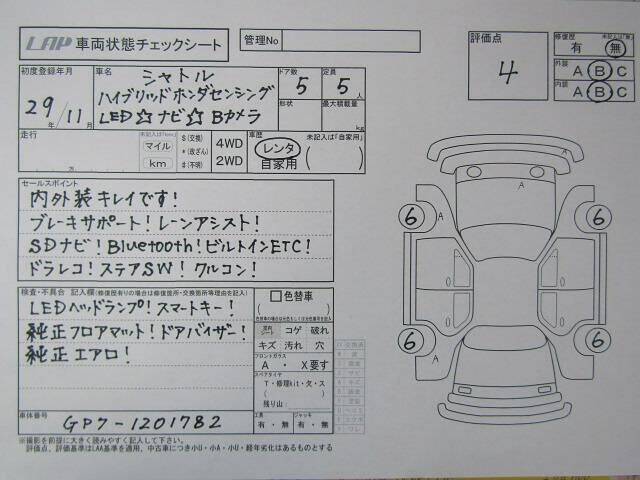 LAP 車両状態チェックシート
管理No
評価点
4
修復歴 未記入は「無」
有 無
外装 A B C
内装 A B C
初度登録年月
29年/11月
車名 シャトル
ハイブリッドホンダセンシング
LED☆ナビ☆Bカメラ
ドア数 5
定員 5人
形状
最大積載量
kg
走行
未記入は「km」
マイル
km
$(交換)
*(改ざん)
#(不明)
4WD
2WD
車歴 未記入は「自家用」
レンタ
自家用
( )
セールスポイント
内外装キレイです!
ブレーキサポート!レーンアシスト!
SDナビ!Bluetooth!ビルトインETC!
ドラレコ!ステアSW!クルコン!
検査・不具合 記入欄(修復歴有りの場合は修復箇所・交換箇所等理由を記入)
LEDヘッドランプ!スマートキー!
純正フロアマット!ドアバイザー!
純正エアロ!
色替車
( )
室内シート
コゲ 破れ
キズ 汚れ 穴
フロントガラス
A ・ X要す
スペアタイヤ
T・修理kit・欠・ス
残り山:
工具
有・無
ジャッキ
有・無
車体番号
GP7-1201782
※撮影を前提に大きく読みやすく記入して下さい。
評価点、評価基準はLAA基準を適用、中古車につき小U・小A・小U・経年劣化はあるものとする
A
6
A
6
A
6
A
6